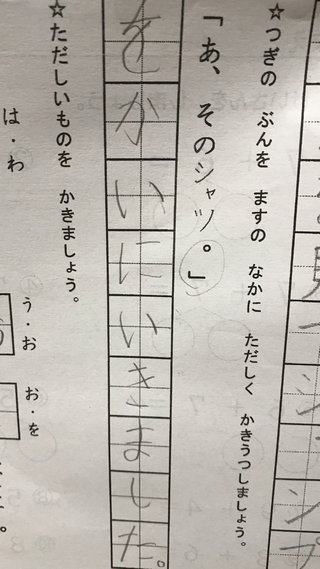 見
つ
シ
☆つぎの ぶんを ますの なかに ただしく かきうつしましょう。
「あ、そのシャツ。」
をかいにいきました。
☆ただしいものを かきましょう。
は・わ
う・お
お・を